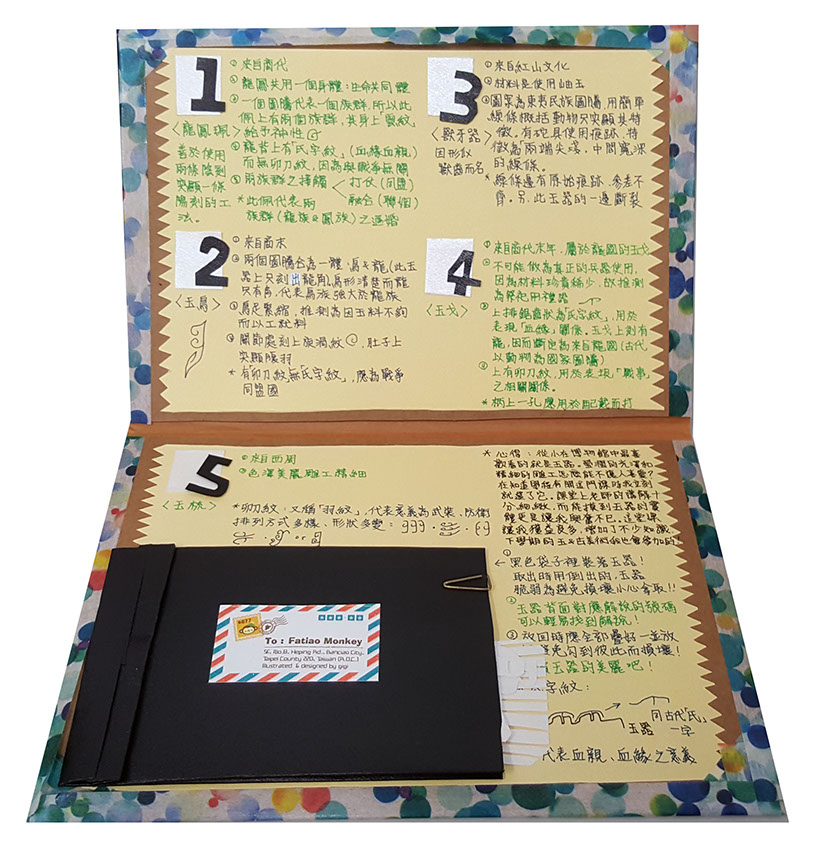 1
<龍鳳珮>
善於使用
兩條陰刻
突顯一條
陽刻的工
法。
①來自商代
龍鳳共用一個身體:生命共同體
②一個圖騰代表一個族群,所以此
珮上有兩個族群,其身上
給予神性
③龍背上有「氏字紋」(血緣血親)
而無卯刀紋,因為與戰爭無關
④兩族群之接觸
打仗(同盟)
融合(聯個)
*此佩代表兩
族群(龍族&鳳族)之通婚
2
<玉鳥>
①來自商末
②兩個圖騰合為一體,鳥&龍(此玉
器上只刻出龍角)鳥形清楚而龍
只有角,代表鳥族強大於龍族
③鳥足緊縮,推測為因玉料不夠
而以工就料
④關節處刻上旋渦紋,肚子上
突顯腹羽
*有卯刀紋無「氏字紋」,應為戰爭
同盟國
3
<獸牙器>
因形似
獸齒而名
①來自紅山文化
②材料是使用岫玉
③圖案為東夷民族圖騰,用簡單
線條概括動物只突顯其特
徵,有砣具使用痕跡,特
徵為兩端尖淺,中間寬深
的線條。
*線條邊有原始痕跡,參差不
齊。另,此玉器的一邊斷裂
4
<玉戈>
①來自商代末年,屬於龍國的玉戈
②不可能做為真正的兵器使用,
因為材料珍貴稀少,故推測
為祭祀用禮器
③上排鋸齒狀為「氏字紋」,用於
表現「血緣」關係,玉戈上刻有
龍,因而斷定為來自龍國(古代
以動物為國家圖騰)
④上有卯刀紋,用於表現「戰事」
之相關關係。
*柄上一孔應用於配戴而打
5
<玉

①來自西周
②色澤美麗雕工精細
*卯刀紋:又稱「羽紋」,代表意義為武裝、防衛
排列方式多樣,形狀多變:
or
*心得:從小在博物館中最喜
歡看的就是玉器。堅潤的光澤和
精細的雕工怎麼能不惹人喜愛?
在知道學校有開這門課時我立刻
就選了它。課堂上老師的講解十
分細緻,而能摸到玉器的實
體更是讓我興奮不已。這堂課
讓我獲益良多,增加了不少知識
下學期的玉&古美術我也會參加的!
①
←黑色袋子裡裝著玉器!
取出時用倒出的,玉器
脆弱為避免損壞小心拿取!!
②
玉器背面對應解說的號碼
可以輕易找到解說!
③放回時應全部疊好一並放
免閃到彼此而損壞!
玉器的美麗吧!
字紋:
玉器
同古代「氏」
一字
代表血親、血緣之意義
To : Fatiao Monkey
5F, No.8, Heping Rd., Banciao City,
Taipei County 220, Taiwan (R.O.C.)
Illustrated & designed by gigi